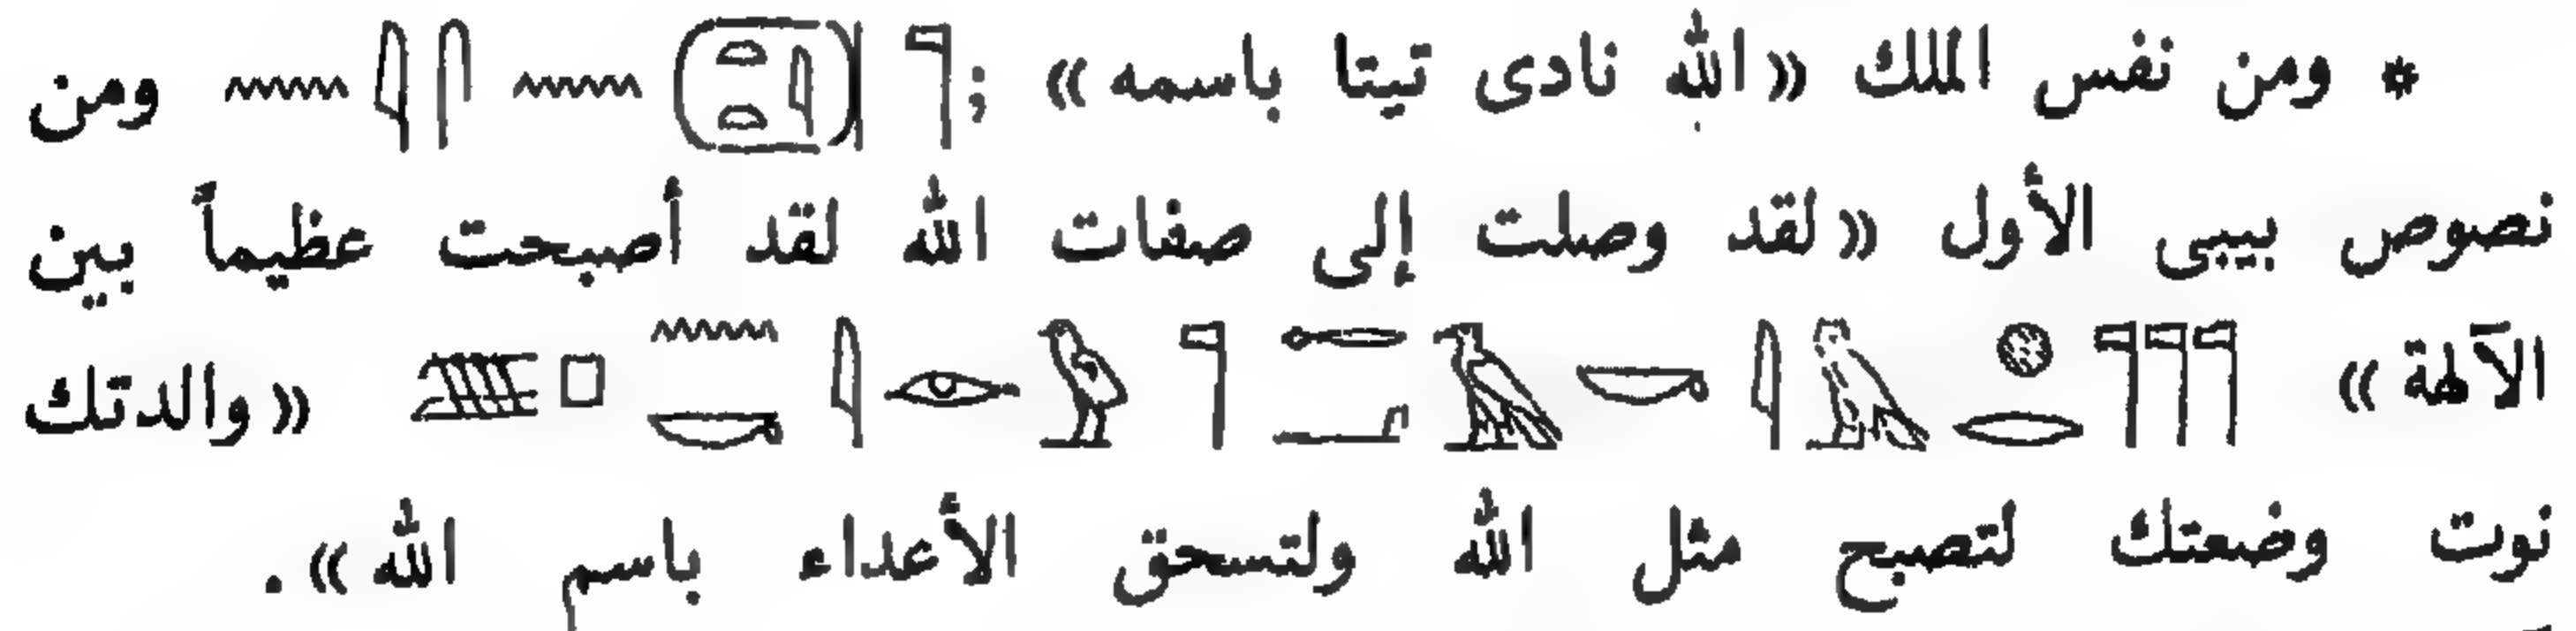 * ومن نفس الملك «الله نادى تيتا باسمه» ; ومن
نصوص بيبى الأول «لقد وصلت إلى صفات الله لقد أصبحت عظيماً بين
الآلهة» «والدتك
نوت وضعتك لتصبح مثل الله ولتسحق الأعداء باسم الله».